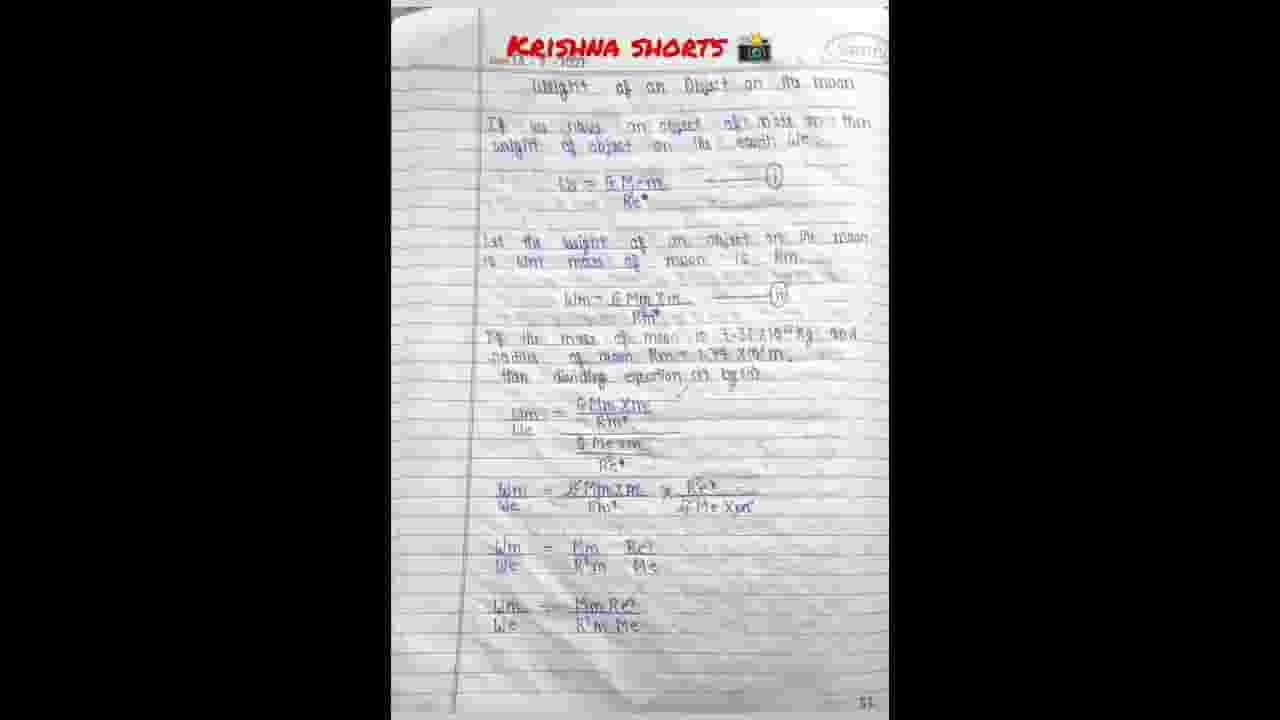 KRISHNA SHORTS
Weight of an Object on the moon
If we have an object of mass m then
weight of object on the earth We
We = G Mem
Re²
(i)
Let the weight of an object on the moon
is Wm mass of moon is Rm
Wm = G Mm X m
Rm²
(ii)
If the mass of moon is Kg and
radius of moon Rm = 1.74 X10 m
than dividing equation (ii) by (i)
Wm = G Mm X m
We Rm²
G Me x m
Re²
Wm = G Mm X m x Re²
We Rm² G Me X m
Wm = Mm Re²
We R²m Me
Wm = Mm Re²
We R²m Me